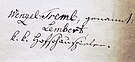 Wenzel Treml, genannt
Lembert
k. k. Hofschauspieler.